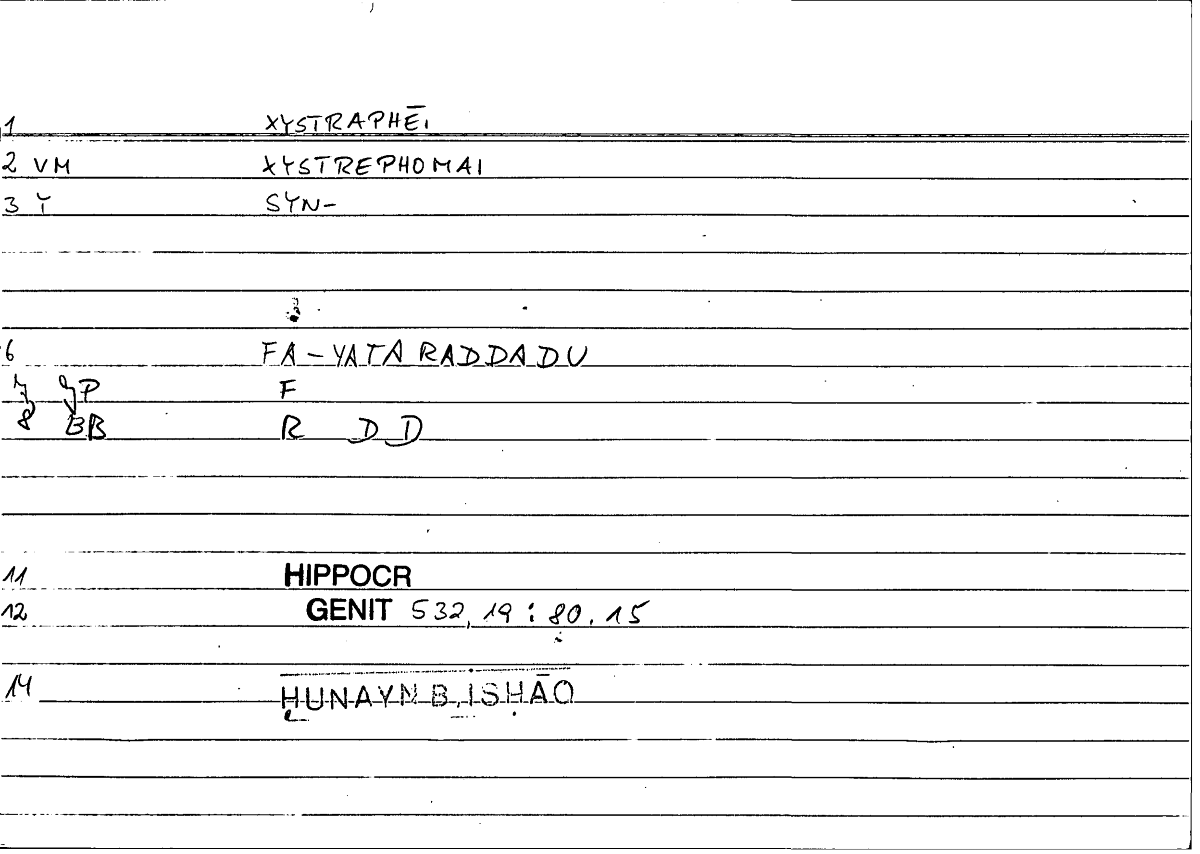 1 XYSTRAPHĒI
2 VM XYSTREPHOMAI
3 Y SYN-
6 FA-YATARADDADU
7 P F
8 BB R DD
11 HIPPOCR
12 GENIT 532,19 : 80.15
14 ḤUNAYN B. ISḤĀQ